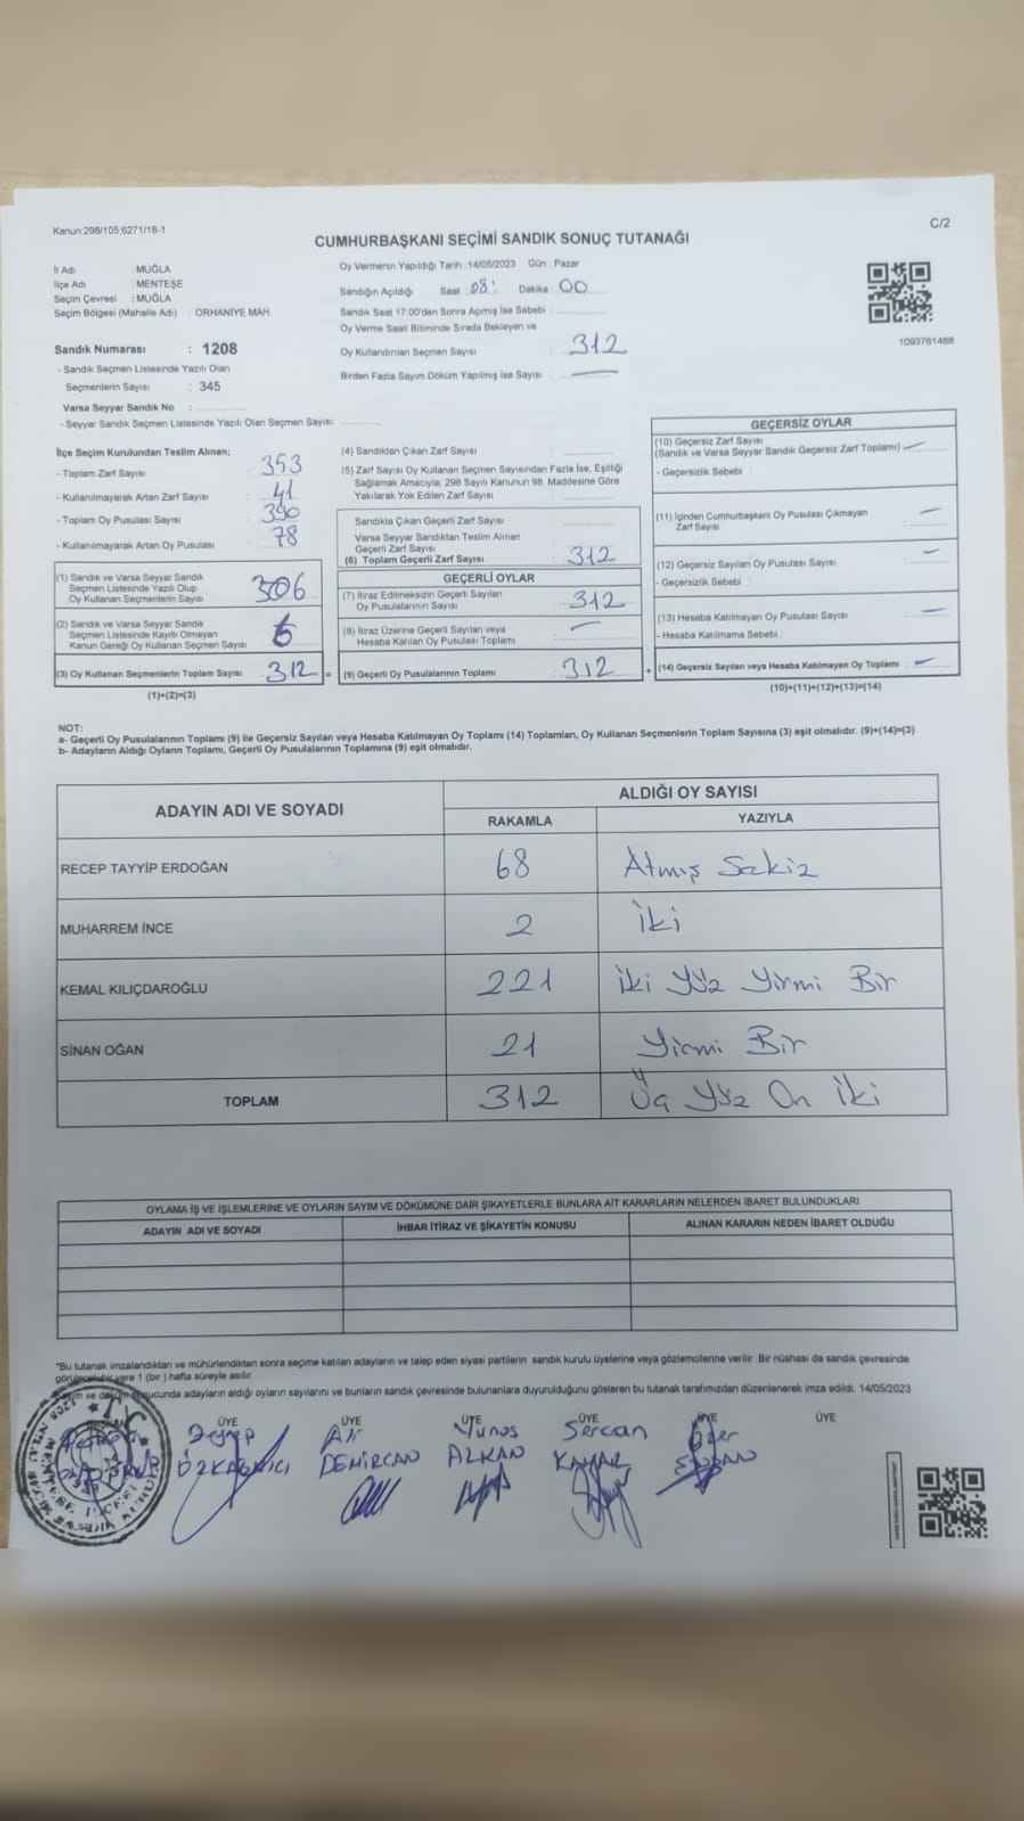 Kanun:298/105;6271/18-1
C/2
CUMHURBAŞKANI SEÇİMİ SANDIK SONUÇ TUTANAĞI
İl Adı : MUĞLA
İlçe Adı : MENTEŞE
Seçim Çevresi : MUĞLA
Seçim Bölgesi (Mahalle Adı) ORHANİYE MAH.
Sandık Numarası : 1208
- Sandık Seçmen Listesinde Yazılı Olan
Seçmenlerin Sayısı : 345
Varsa Seyyar Sandık No :
- Seyyar Sandık Seçmen Listesinde Yazılı Olan Seçmen Sayısı
Oy Vermenin Yapıldığı Tarih :14/05/2023 Gün : Pazar
Sandığın Açıldığı Saat 08: Dakika 00
Sandık Saat 17:00'dan Sonra Açılmış İse Sebebi
Oy Verme Saati Bitiminde Sırada Bekleyen ve
Oy Kullandırılan Seçmen Sayısı : 312
Birden Fazla Sayım Döküm Yapılmış İse Sayısı : —
1093761488
İlçe Seçim Kurulundan Teslim Alınan;
- Toplam Zarf Sayısı : 353
- Kullanılmayarak Artan Zarf Sayısı : 41
- Toplam Oy Pusulası Sayısı : 390
- Kullanılmayarak Artan Oy Pusulası : 78
(1) Sandık ve Varsa Seyyar Sandık
Seçmen Listesinde Yazılı Olup
Oy Kullanan Seçmenlerin Sayısı 306
(2) Sandık ve Varsa Seyyar Sandık
Seçmen Listesinde Kayıtlı Olmayan
Kanun Gereği Oy Kullanan Seçmen Sayısı 6
(3) Oy Kullanan Seçmenlerin Toplam Sayısı 312 =
(1)+(2)=(3)
(4) Sandıktan Çıkan Zarf Sayısı
(5) Zarf Sayısı Oy Kullanan Seçmen Sayısından Fazla İse, Eşitliği
Sağlamak Amacıyla, 298 Sayılı Kanunun 98. Maddesine Göre
Yakılarak Yok Edilen Zarf Sayısı
Sandıkta Çıkan Geçerli Zarf Sayısı
Varsa Seyyar Sandıktan Teslim Alınan
Geçerli Zarf Sayısı
(6) Toplam Geçerli Zarf Sayısı : 312
GEÇERLİ OYLAR
(7) İtiraz Edilmeksizin Geçerli Sayılan
Oy Pusulalarının Sayısı : 312
(8) İtiraz Üzerine Geçerli Sayılan veya
Hesaba Katılan Oy Pusulası Toplamı : —
(9) Geçerli Oy Pusulalarının Toplamı : 312 +
GEÇERSİZ OYLAR
(10) Geçersiz Zarf Sayısı
(Sandık ve Varsa Seyyar Sandık Geçersiz Zarf Toplamı) —
- Geçersizlik Sebebi :
(11) İçinden Cumhurbaşkanı Oy Pusulası Çıkmayan
Zarf Sayısı —
(12) Geçersiz Sayılan Oy Pusulası Sayısı —
- Geçersizlik Sebebi :
(13) Hesaba Katılmayan Oy Pusulası Sayısı —
- Hesaba Katılmama Sebebi :
(14) Geçersiz Sayılan veya Hesaba Katılmayan Oy Toplamı : —
(10)+(11)+(12)+(13)=(14)
NOT:
a- Geçerli Oy Pusulalarının Toplamı (9) ile Geçersiz Sayılan veya Hesaba Katılmayan Oy Toplamı (14) Toplamları, Oy Kullanan Seçmenlerin Toplam Sayısına (3) eşit olmalıdır. (9)+(14)=(3)
b- Adayların Aldığı Oyların Toplamı, Geçerli Oy Pusulalarının Toplamına (9) eşit olmalıdır.
ADAYIN ADI VE SOYADI ALDIĞI OY SAYISI
RAKAMLA YAZIYLA
RECEP TAYYİP ERDOĞAN 68 Atmış Sekiz
MUHARREM İNCE 2 İki
KEMAL KILIÇDAROĞLU 221 İki Yüz Yirmi Bir
SİNAN OĞAN 21 Yirmi Bir
TOPLAM 312 Üç Yüz On İki
OYLAMA İŞ VE İŞLEMLERİNE VE OYLARIN SAYIM VE DÖKÜMÜNE DAİR ŞİKAYETLERLE BUNLARA AİT KARARLARIN NELERDEN İBARET BULUNDUKLARI
ADAYIN ADI VE SOYADI İHBAR İTİRAZ VE ŞİKAYETİN KONUSU ALINAN KARARIN NEDEN İBARET OLDUĞU
*Bu tutanak imzalandıktan ve mühürlendikten sonra seçime katılan adayların ve talep eden siyasi partilerin sandık kurulu üyelerine veya gözlemcilerine verilir. Bir nüshası da sandık çevresinde
yere 1 (bir) hafta süreyle asılır.
sonucunda adayların aldığı oyların sayılarını ve bunların sandık çevresinde bulunanlara duyurulduğunu gösteren bu tutanak tarafımızdan düzenlenerek imza edildi. 14/05/2023
ÜYE ÜYE ÜYE ÜYE ÜYE ÜYE
Zeynep Ali Yunus Sercan
DEMİRCAN ALKAN
T.C.